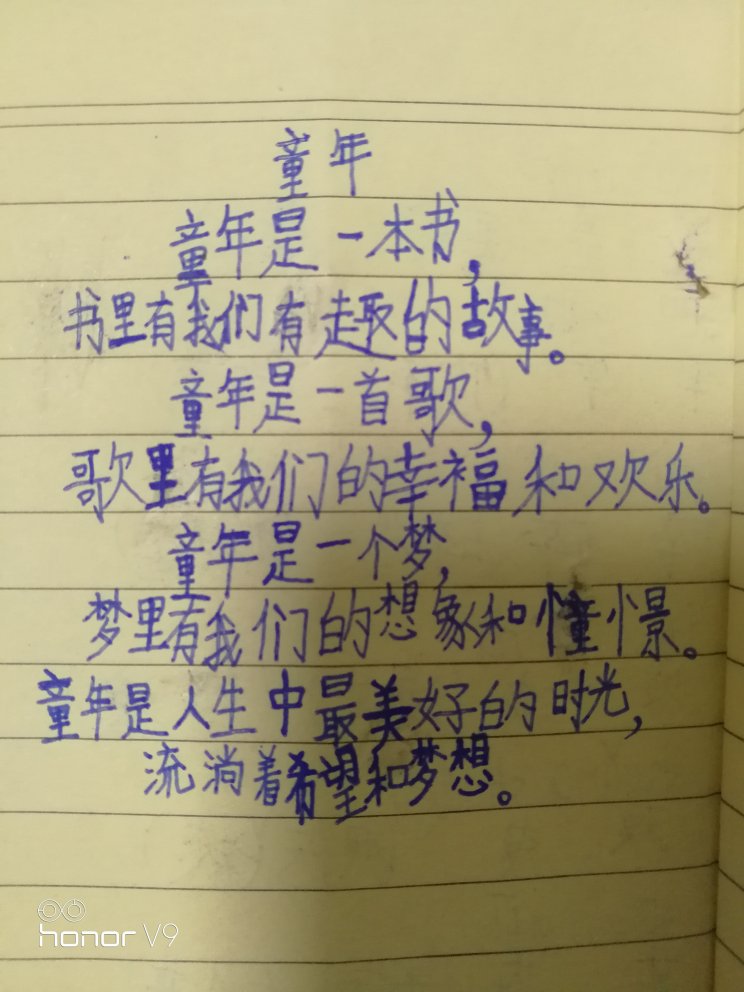 童年
童年是一本书，
书里有我们有趣的故事。
童年是一首歌，
歌里有我们的幸福和欢乐。
童年是一个梦，
梦里有我们的想象和憧憬。
童年是人生中最美好的时光，
流淌着希望和梦想。
honor V9